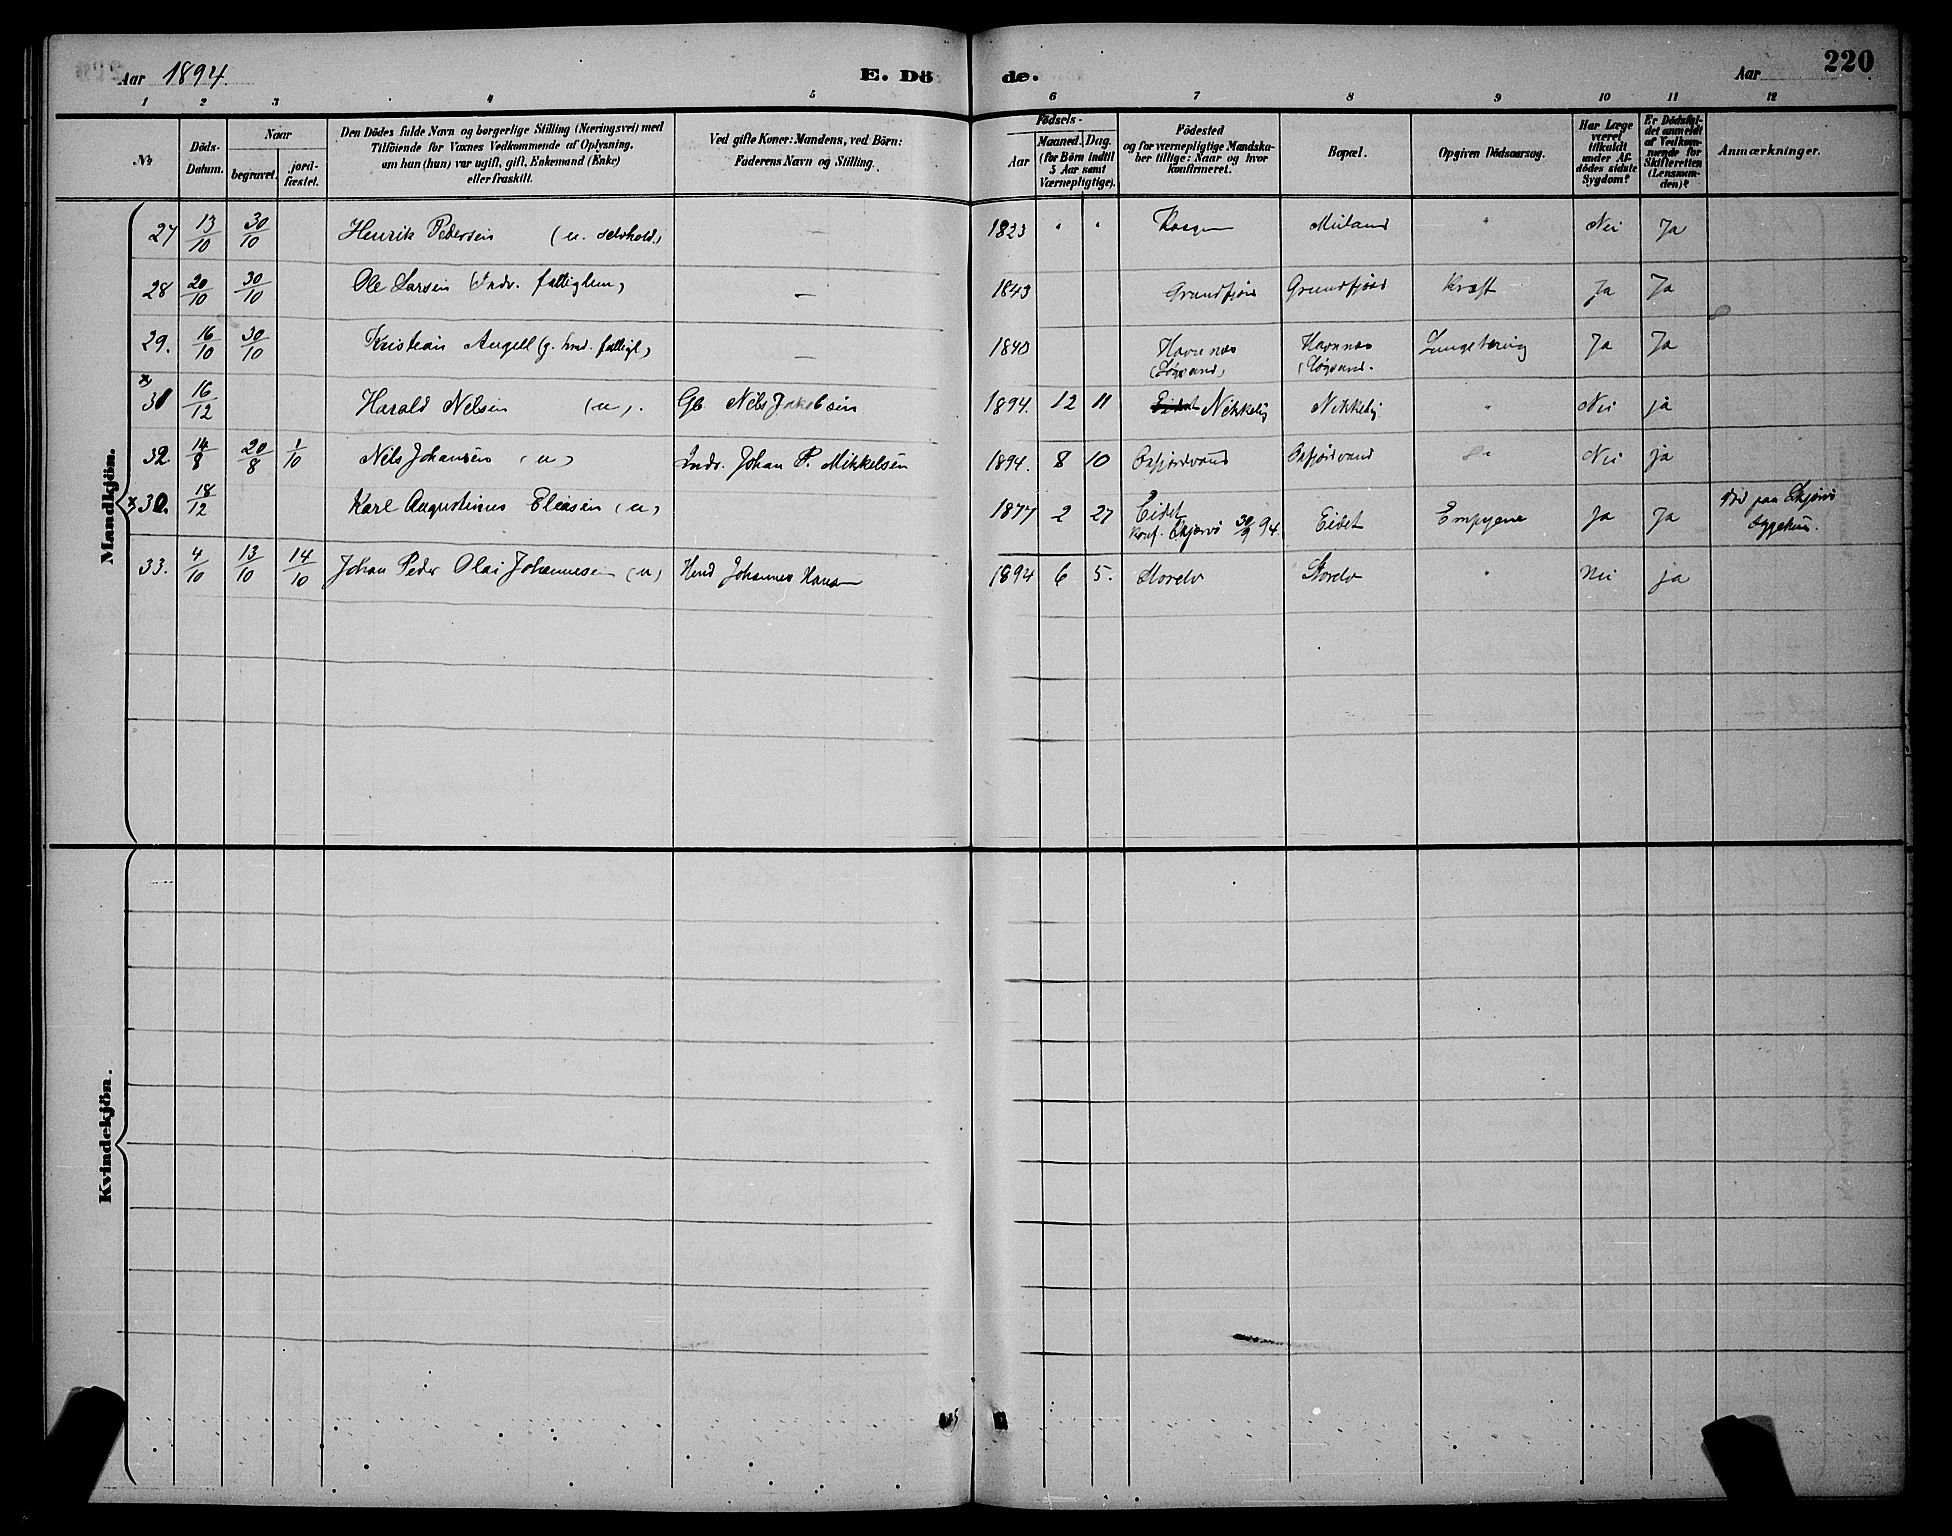 Aar 1894.
E. Dö de.
Aar
220
1 2 3 4 5 6 7 8 9 10 11 12
No
Döds-
Datum.
Naar
begravet.
jord-
fæstet.
Den Dödes fulde Navn og borgerlige Stilling (Næringsvei) med
Tilföiende for Voxnes Vedkommende af Oplysning,
om han (hun) var ugift, gift, Enkemand (Enke)
eller fraskilt.
Ved gifte Koner: Mandens, ved Börn:
Faderens Navn og Stilling.
Födsels-
Aar
Maaned. Dag.
(for Börn indtil
5 Aar samt
Værnepligtige).
Födested
og for værnepligtige Mandska-
ber tillige: Naar og hvor
konfirmeret.
Bopæl.
Opgiven Dödsaarsag.
Har Læge
været
tilkaldt
under Af-
dödes sidste
Sygdom?
Er Dödsfal-
det anmeldt
af Vedkom-
mende for
Skifteretten
(Lensman-
den)?
Anmærkninger.
Mandkjön.
27 13/10 30/10 Henrik Pedersen (u. selvhold.) — 1823 " " Meiland " Nei Ja
28 20/10 30/10 Ole Larsen (Indr. fattiglem) — 1843 Grundfjord Grundfjord Kræft Ja Ja
29. 16/10 30/10 Kristian Angell — 1840 Havnnæs Havnnæs Ja Ja
x 31 16/12 Harald Nelsen (u). Gb. Nils Jakobsen 1894. 12 11 Nikkeby Nikkeby " Nei ja
32. 14/8 20/8 1/10 Nils Johansen (u) Indr. Johan P. Mikkelsen 1894. 8 10 Oxfjordvand Oxfjordvand " Nei ja
x 30. 18/12 Karl Augustinus Eliasen (u) 1877 2 27 Eidet
Konf. Skjervö 30/9 94. Eidet Empyem Ja Ja Död paa Skjervö
Sygehus.
33. 4/10 13/10 14/10 Johan Peder Olai Johannesen (u) Johannes Hansen 1894 6 5. Storelv Storelv " Nei ja
Kvindekjön.